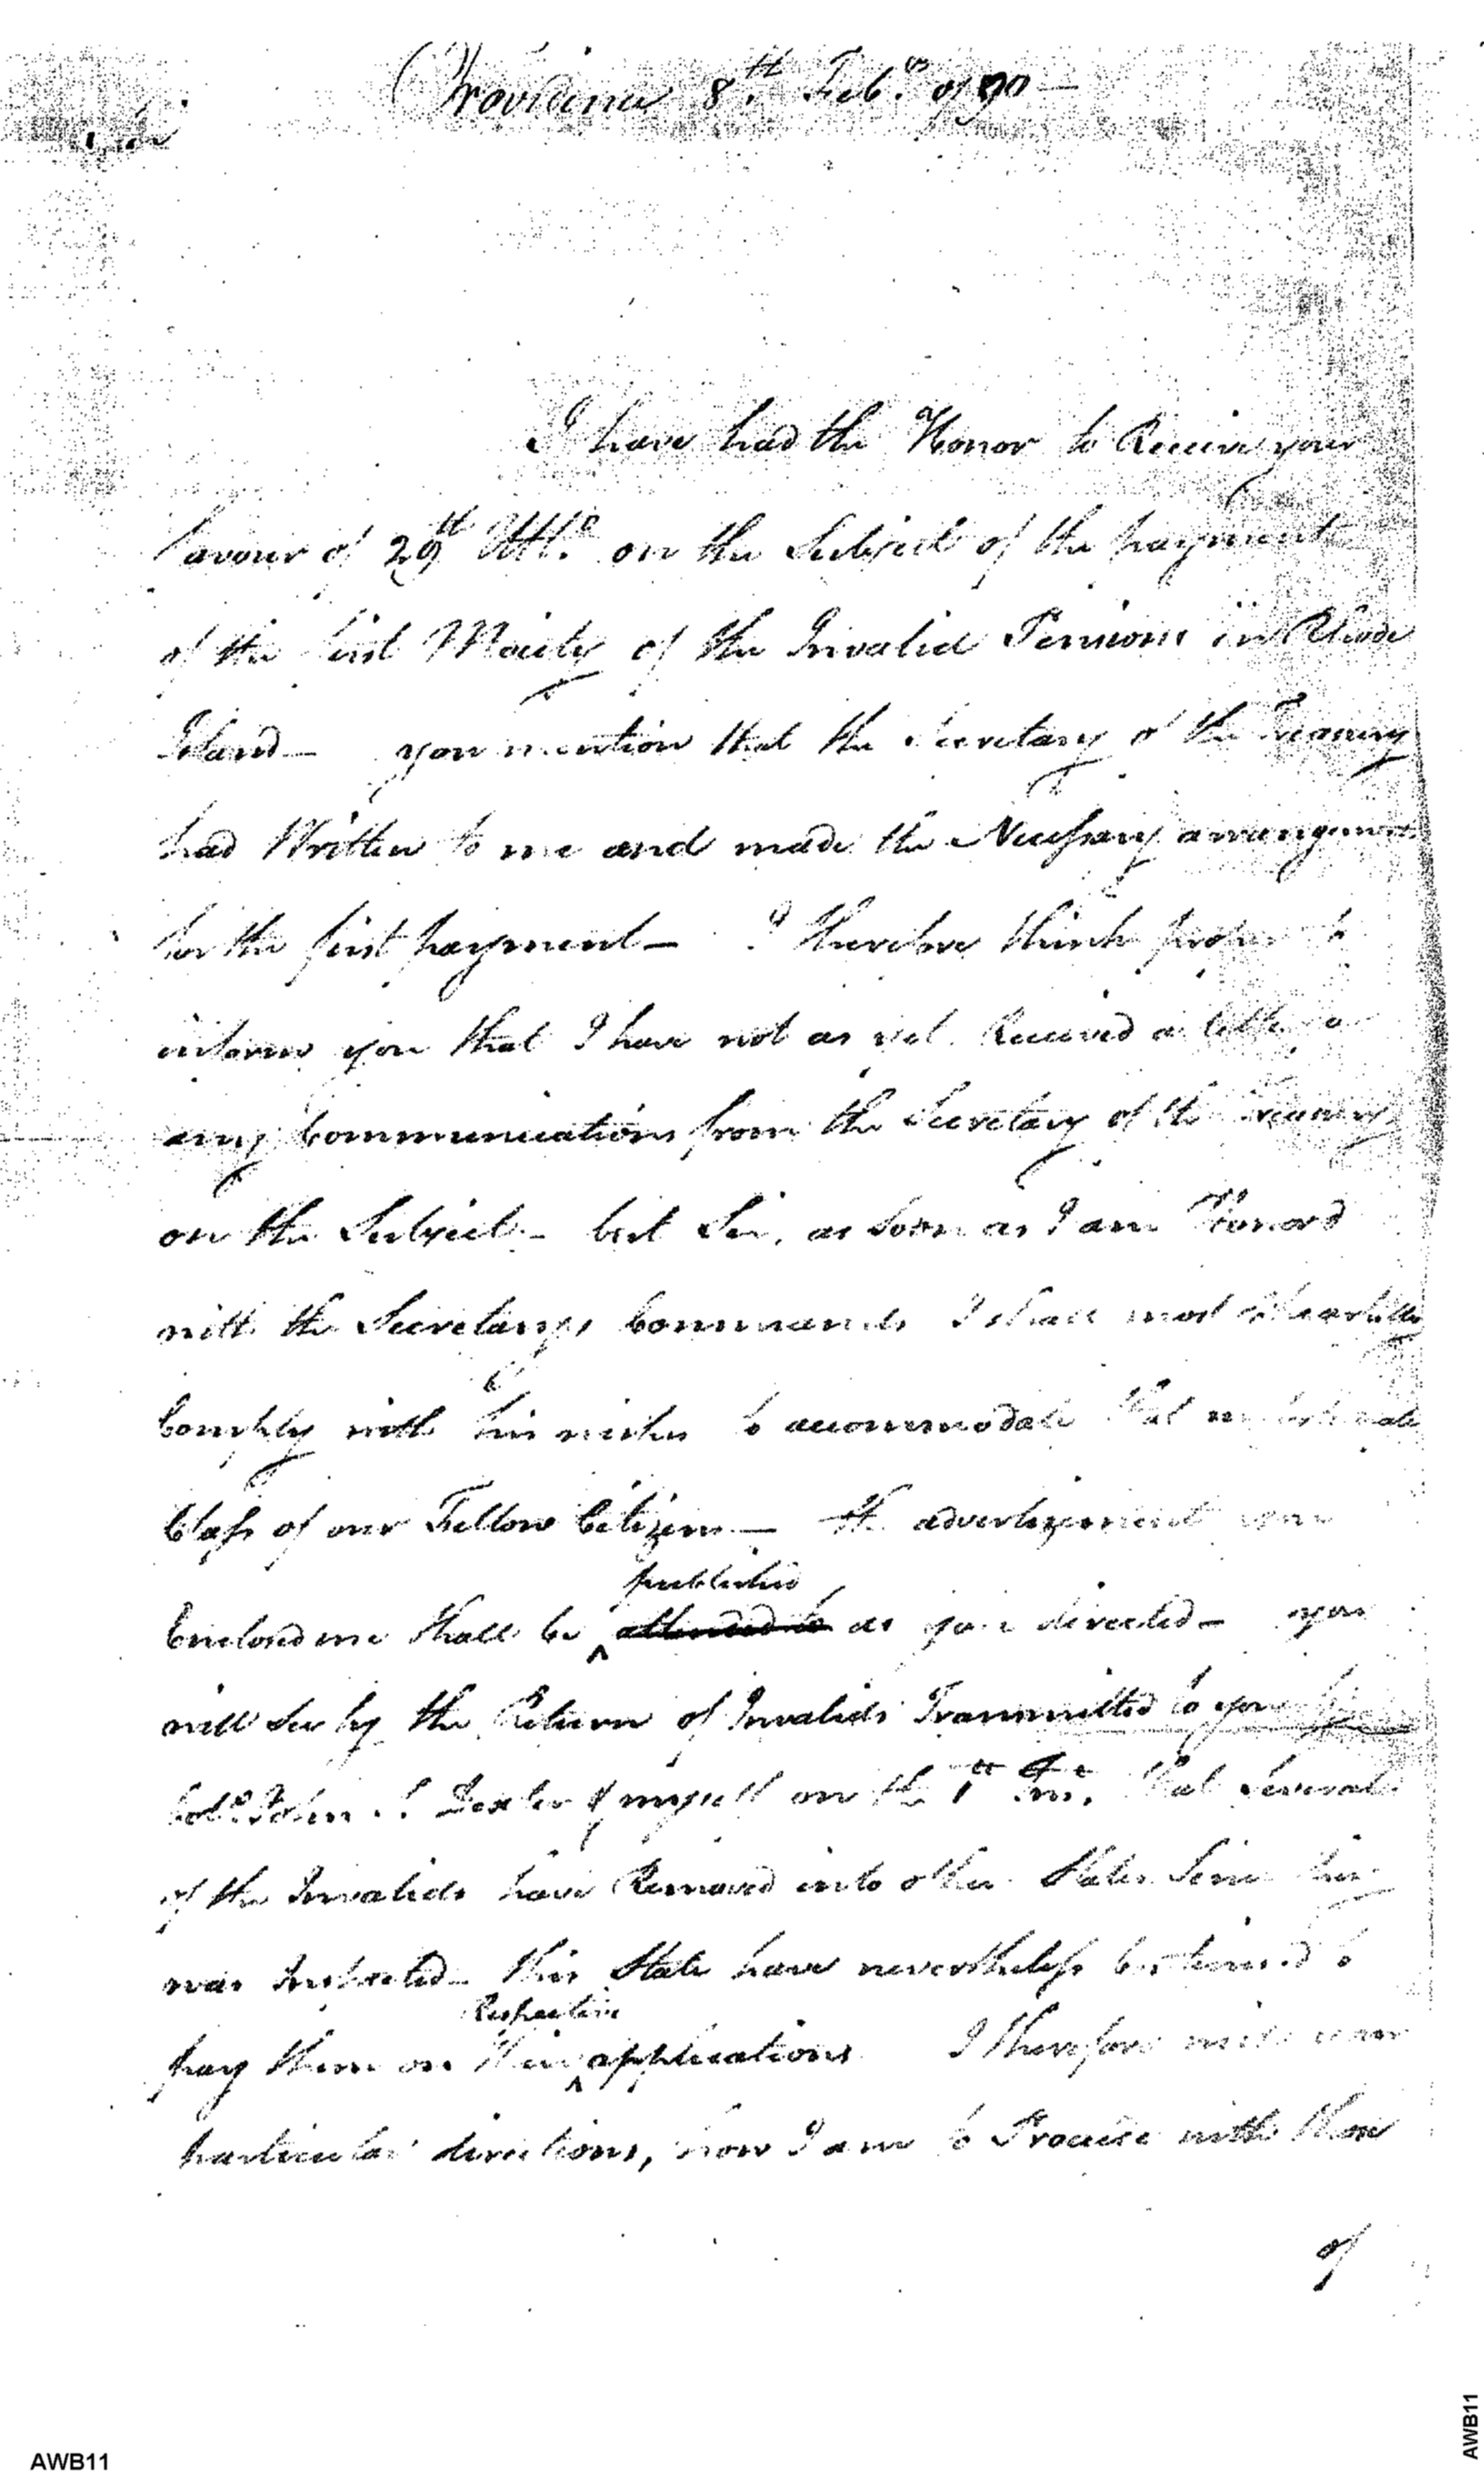 Providence 8th. Feby. 1790 —
Sir
I have had the Honor to Receive your
favour of 29th Ulto. on the Subject of the payment
of the first Moiety of the Invalid Pensions in Rhode
Island — you mention that the Secretary of the Treasury
had Written to me and made the Necessary arrangements
for the first payment — I therefore think proper to
inform you that I have not as yet Received a letter or
any Communications from the Secretary of the Treasury
on the Subject — but Sir, as soon as I am Honord
with the Secretarys Commands I shall most Chearfully
Comply with his wishes to accommodate that unfortunate
Class of our Fellow Citizens — the advertizement you
published
Enclosed me shall be ^ attended to as you directed — you
will see by the Return of Invalids Transmitted to you by
Colo. John S. Dexter & myself on the 1st Int. that several
of the Invalids have Removed into other States Since
was this State have nevertheless Continued to
Respective
pay them on their ^ applications I therefore wish your
particular directions, how I am to Proceed with those
of
AWB11
AWB11